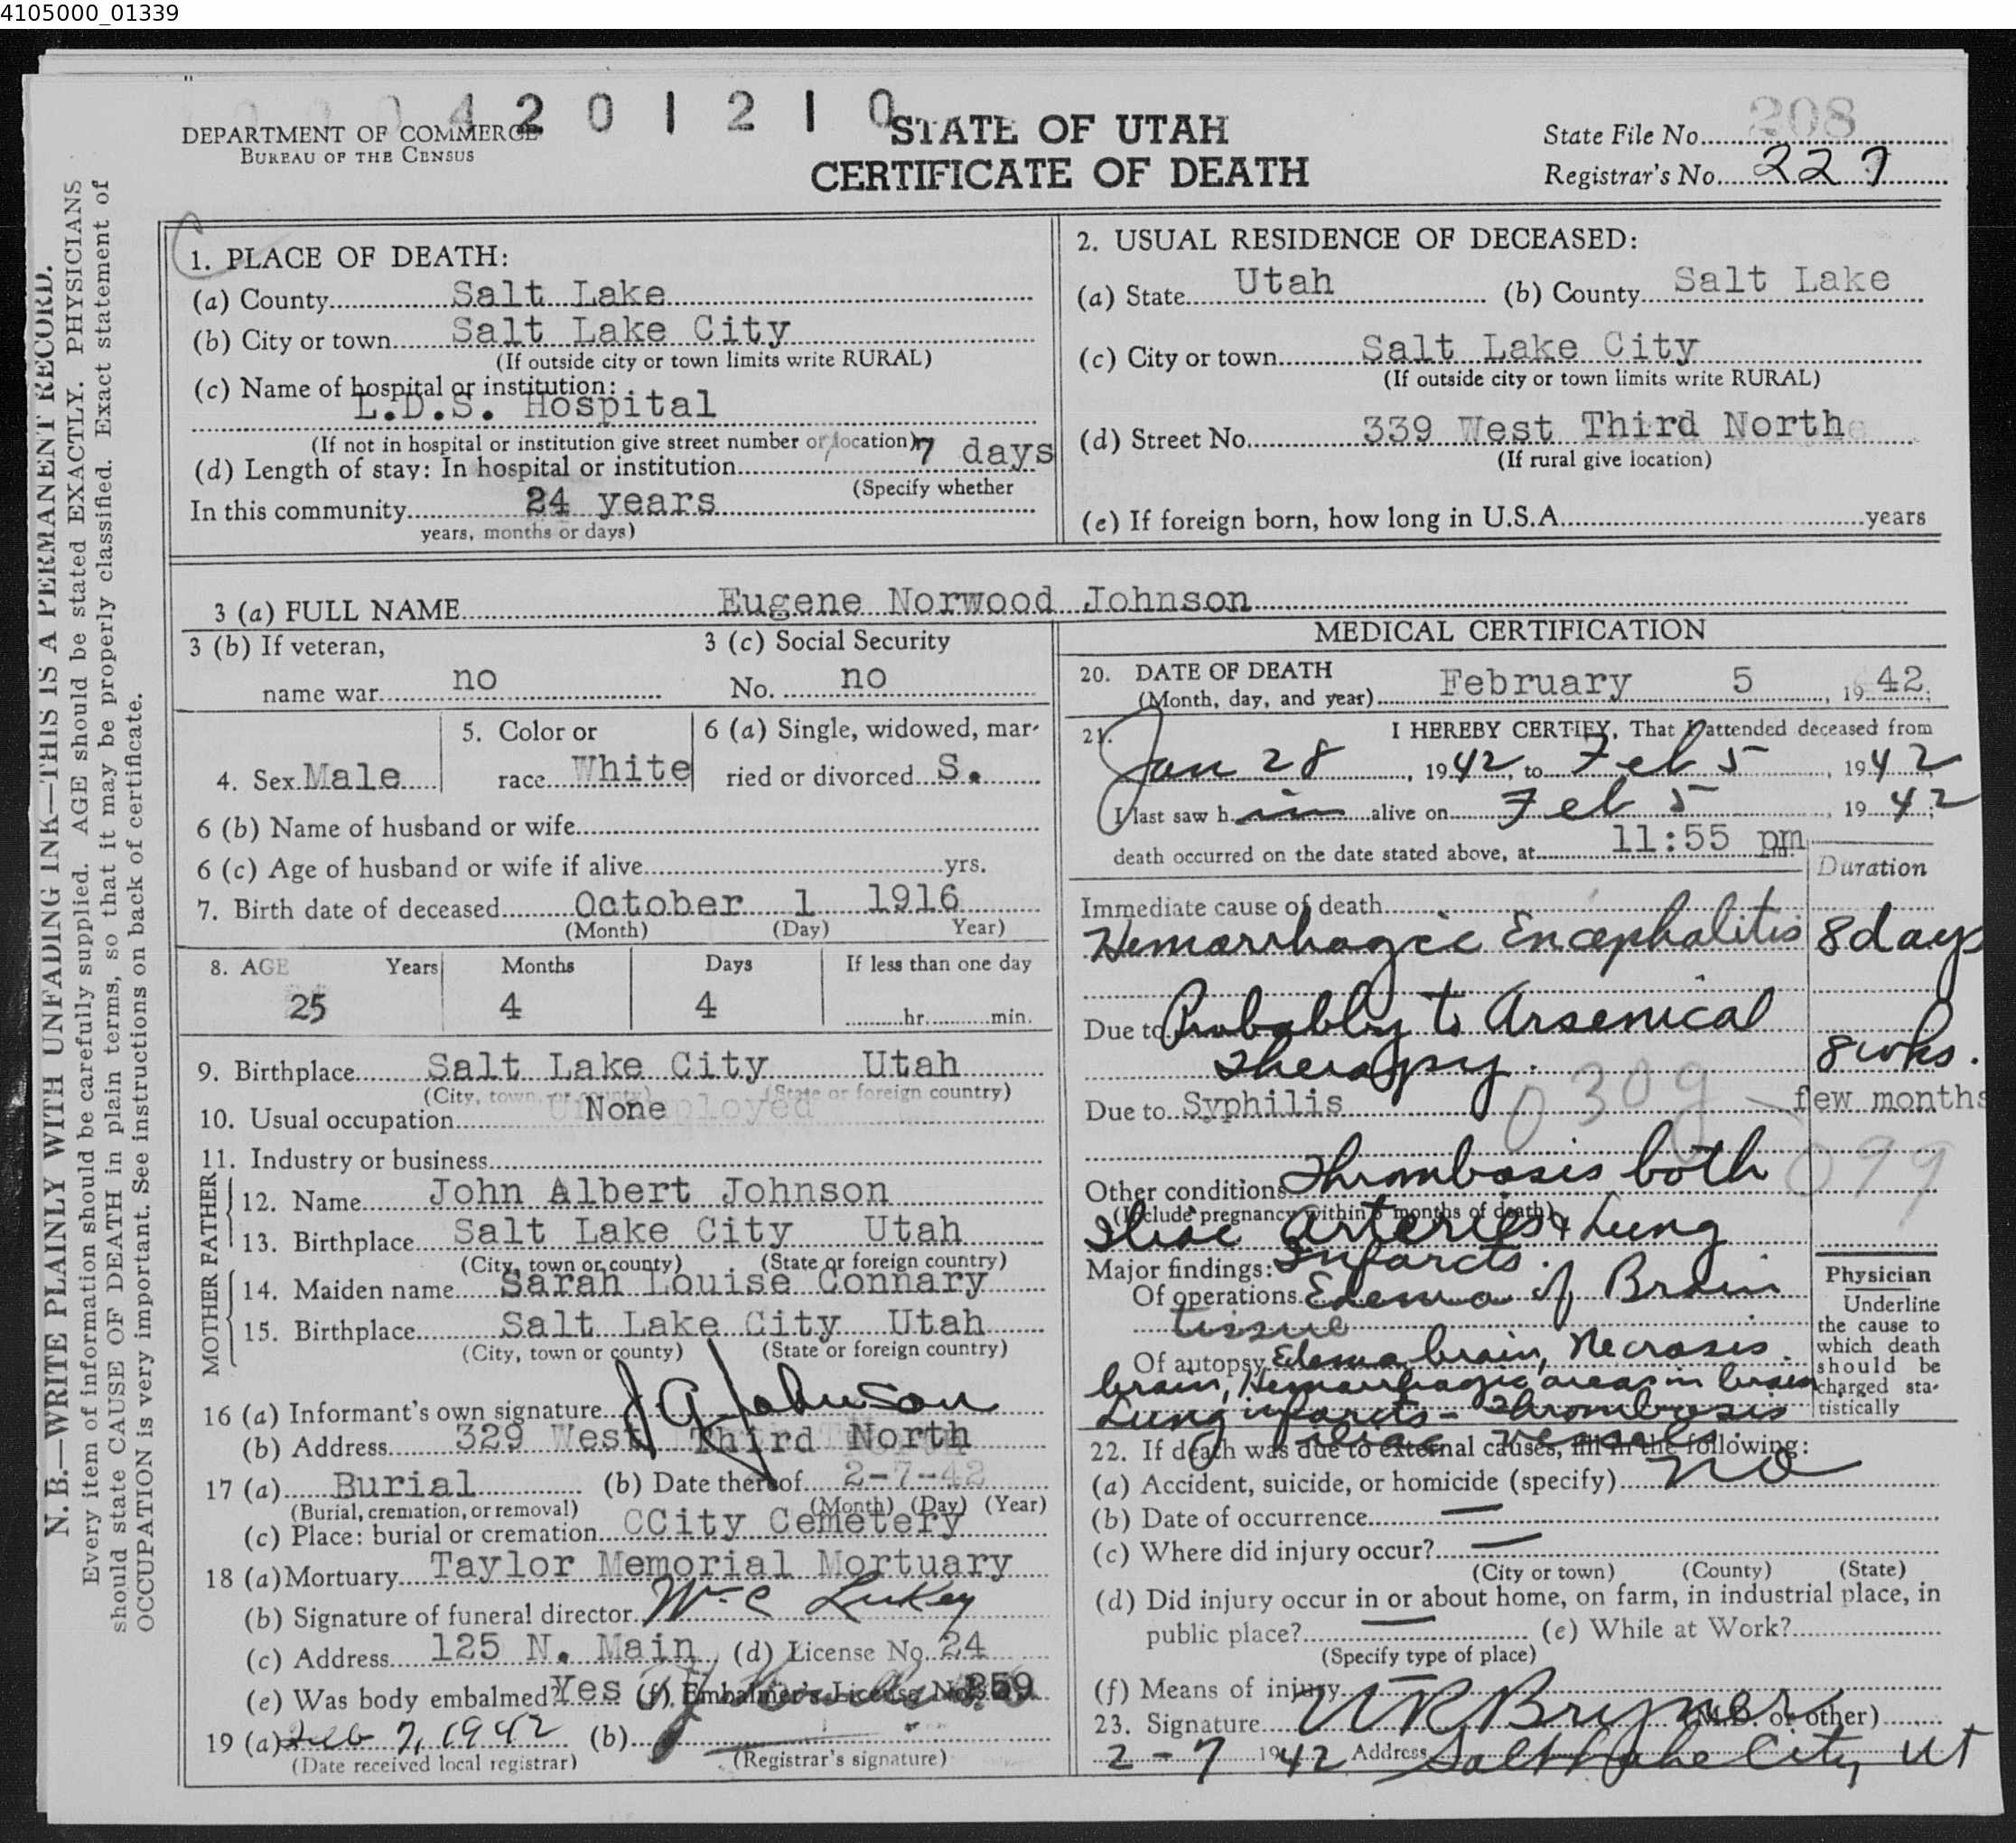 4105000_01339
4201210
DEPARTMENT OF COMMERCE
BUREAU OF THE CENSUS
STATE OF UTAH
CERTIFICATE OF DEATH
State File No. 208
Registrar's No. 227
N. B.—WRITE PLAINLY WITH UNFADING INK—THIS IS A PERMANENT RECORD.
Every item of information should be carefully supplied. AGE should be stated EXACTLY. PHYSICIANS
should state CAUSE OF DEATH in plain terms, so that it may be properly classified. Exact statement of
OCCUPATION is very important. See instructions on back of certificate.
1. PLACE OF DEATH:
(a) County Salt Lake
(b) City or town Salt Lake City
(If outside city or town limits write RURAL)
(c) Name of hospital or institution:
L.D.S. Hospital
(If not in hospital or institution give street number or location)
(d) Length of stay: In hospital or institution 7 days
(Specify whether
In this community 24 years
years, months or days)
2. USUAL RESIDENCE OF DECEASED:
(a) State Utah (b) County Salt Lake
(c) City or town Salt Lake City
(If outside city or town limits write RURAL)
(d) Street No. 339 West Third North
(If rural give location)
(e) If foreign born, how long in U.S.A. years
3 (a) FULL NAME Eugene Norwood Johnson
3 (b) If veteran, 3 (c) Social Security
name war no No. no
4. Sex Male 5. Color or race White 6 (a) Single, widowed, married or divorced S.
6 (b) Name of husband or wife
6 (c) Age of husband or wife if alive yrs.
7. Birth date of deceased October 1 1916
(Month) (Day) Year)
8. AGE Years Months Days If less than one day
25 4 4 hr. min.
9. Birthplace Salt Lake City Utah
(City, town or county) (State or foreign country)
10. Usual occupation None
11. Industry or business
FATHER
12. Name John Albert Johnson
13. Birthplace Salt Lake City Utah
(City, town or county) (State or foreign country)
MOTHER
14. Maiden name Sarah Louise Connary
15. Birthplace Salt Lake City Utah
(City, town or county) (State or foreign country)
16 (a) Informant's own signature J A Johnson
(b) Address 329 West Third North
17 (a) Burial (b) Date thereof 2-7-42
(Burial, cremation, or removal) (Month) (Day) (Year)
(c) Place: burial or cremation CCity Cemetery
18 (a) Mortuary Taylor Memorial Mortuary
(b) Signature of funeral director Wm C Lukey
(c) Address 125 N. Main (d) License No. 24
(e) Was body embalmed? Yes (f) Embalmer's License No. 359
19 (a) Feb 7, 1942 (b)
(Date received local registrar) (Registrar's signature)
MEDICAL CERTIFICATION
20. DATE OF DEATH
(Month, day, and year) February 5, 1942
21. I HEREBY CERTIFY, That I attended deceased from
Jan 28, 1942, to Feb 5, 1942
I last saw him alive on Feb 5, 1942;
death occurred on the date stated above, at 11:55 pm
Duration
Immediate cause of death
Hemorrhagic Encephalitis 8 days
Due to Probably to Arsenical
Therapy. 8 wks.
Due to Syphilis few months
030g
099
Other conditions Thrombosis both
(Include pregnancy within 3 months of death)
Iliac Arteries & Lung
Infarcts.
Major findings:
Of operations Edema of Brain
tissue
Of autopsy Edema brain, Necrosis
brain, Hemorrhagic areas in brain
Lung infarcts - Thrombosis
iliac vessels.
Physician
Underline
the cause to
which death
should be
charged sta-
tistically
22. If death was due to external causes, fill in the following:
(a) Accident, suicide, or homicide (specify) no
(b) Date of occurrence —
(c) Where did injury occur? —
(City or town) (County) (State)
(d) Did injury occur in or about home, on farm, in industrial place, in
public place? — (e) While at Work?
(Specify type of place)
(f) Means of injury
23. Signature U R Bryner (M.D. or other)
2-7 1942 Address Salt Lake City, Ut